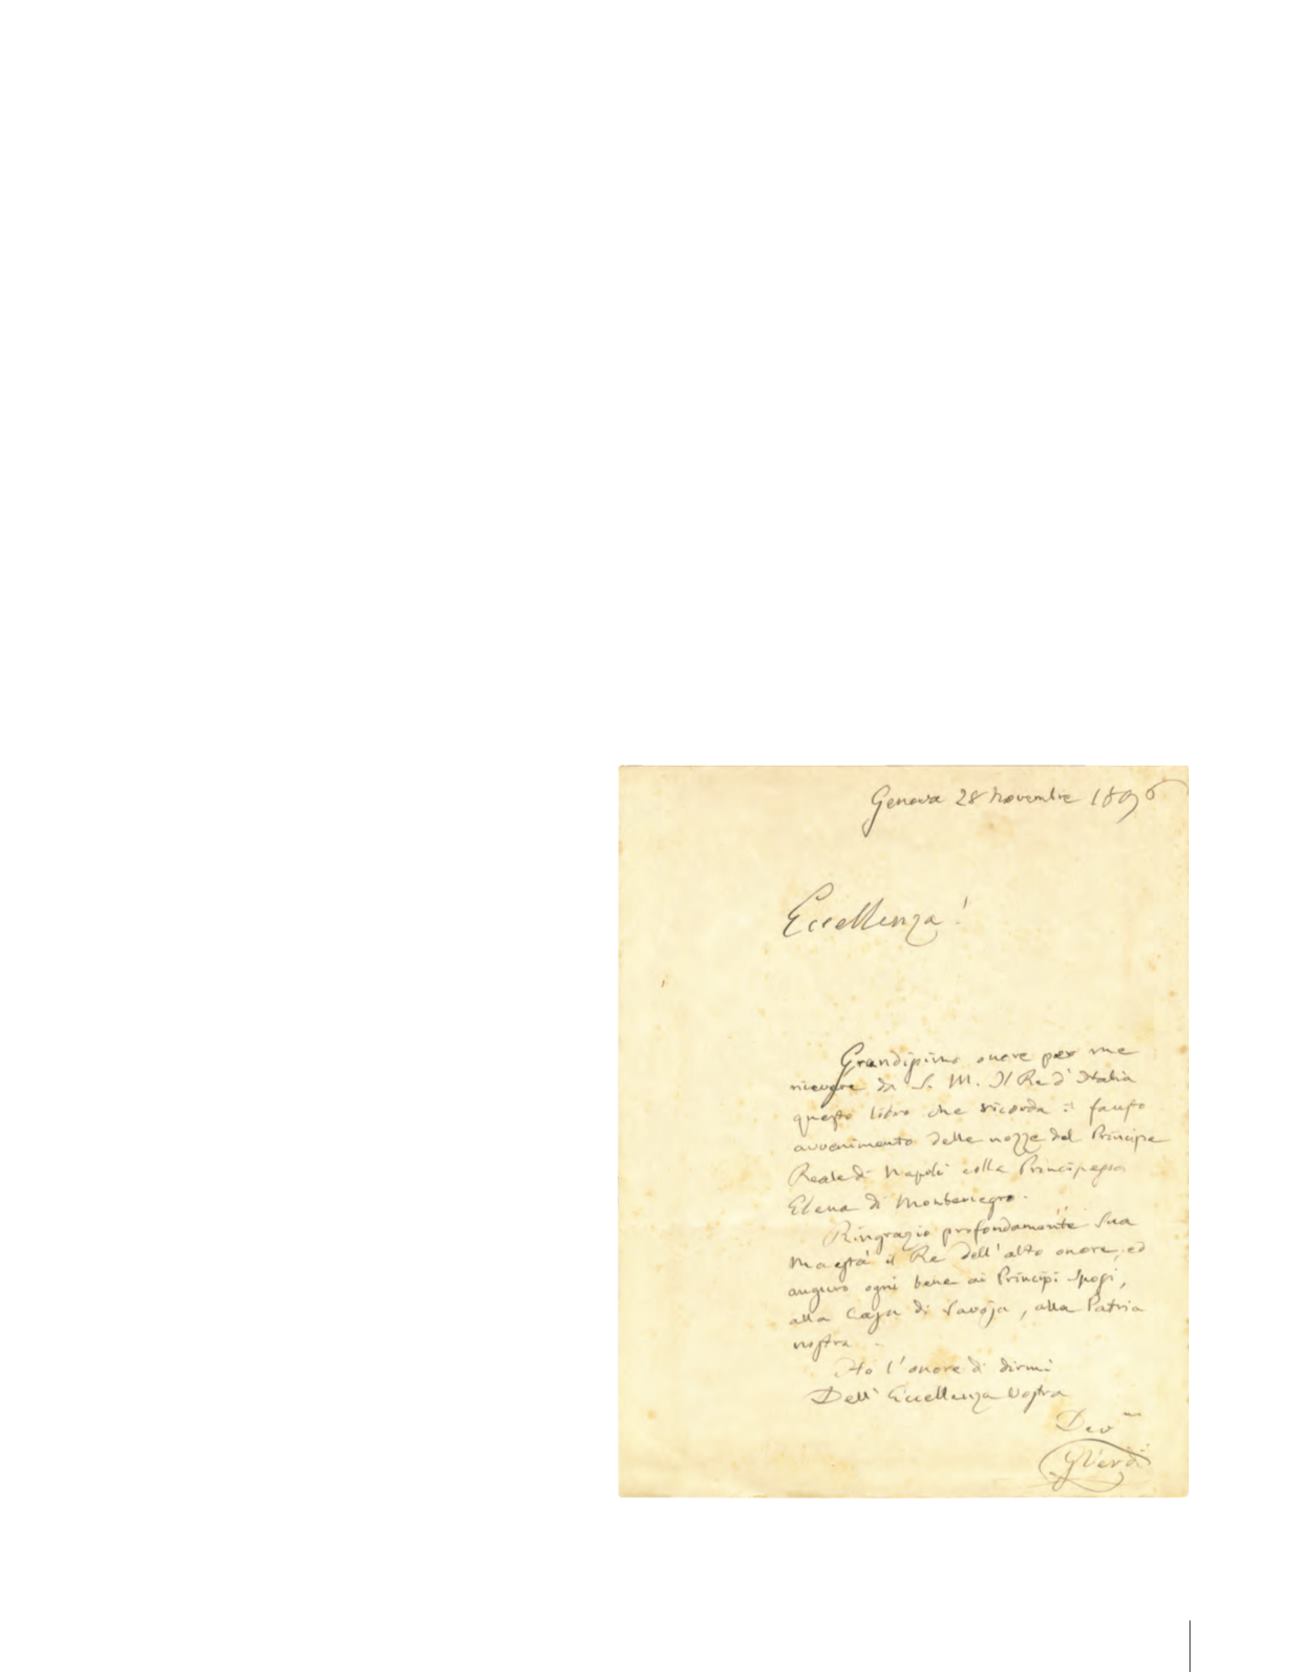 Genova 28 Novembre 1896
Eccellenza!
Grandissimo onore per me
ricevere da S. M. Il Re d'Italia
questo libro che ricorda il fausto
avvenimento delle nozze del Principe
Reale di Napoli colla Principessa
Elena di Montenegro.
Ringrazio profondamente Sua
Maestà il Re dell'alto onore, ed
auguro ogni bene ai Principi Sposi,
alla Casa di Savoja, alla Patria
nostra.
Ho l'onore di dirmi
Dell'Eccellenza Vostra
Dev.mo
GVerdi